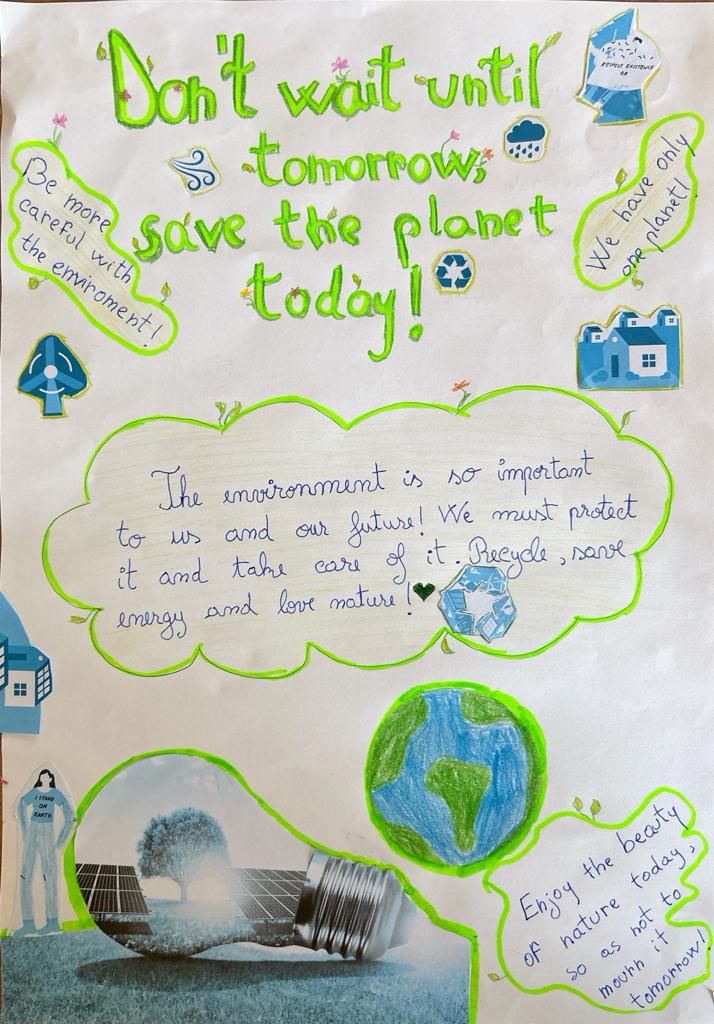 Don't wait until
tomorrow,
save the planet
today!
RESPECT EXISTENCE
OR
Be more
careful with
the enviroment!
We have only
one planet!
The environment is so important
to us and our future! We must protect
it and take care of it. Recycle, save
energy and love nature!
I STAND
ON
EARTH
Enjoy the beauty
of nature today,
so as not to
mourn it
tomorrow!